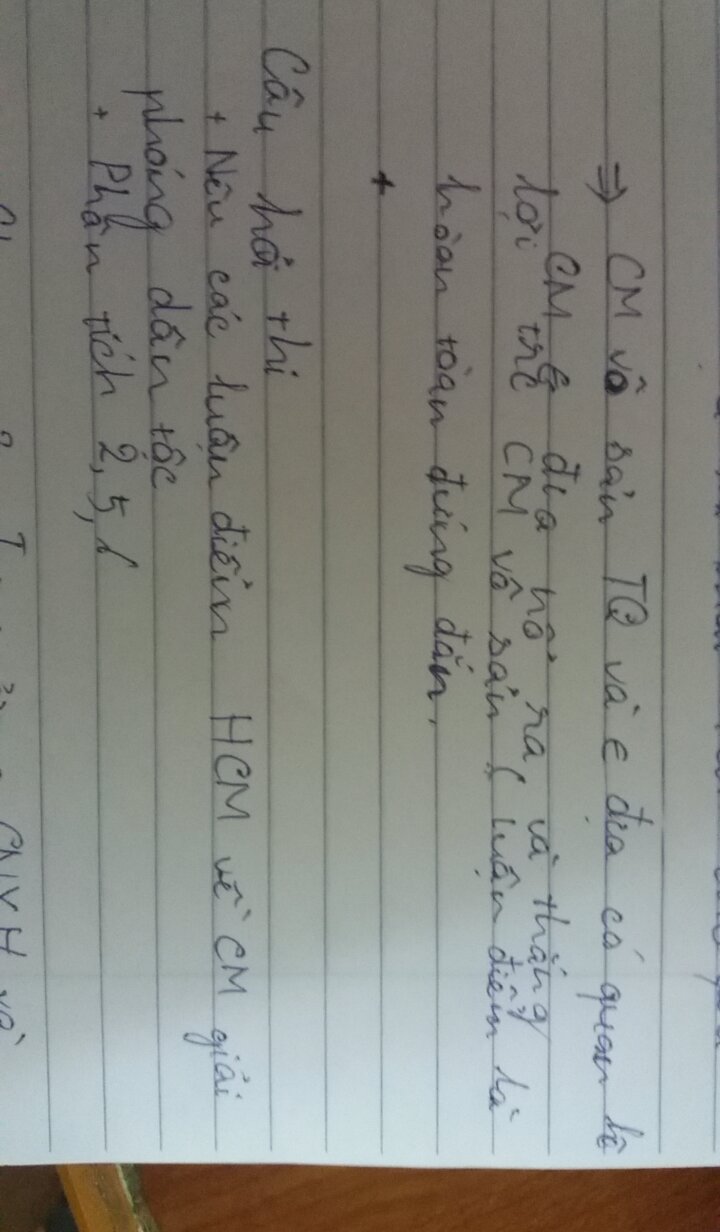 => CM vô sản TQ và € địa có quan hệ
CM € địa nổ ra và thắng
lợi trc CM vô sản ( luận điểm là
hoàn toàn đúng đắn.
+
Câu hỏi thi
+ Nêu các luận điểm HCM về CM giải
phóng dân tộc
+ Phân tích 2, 5,
CNXH và